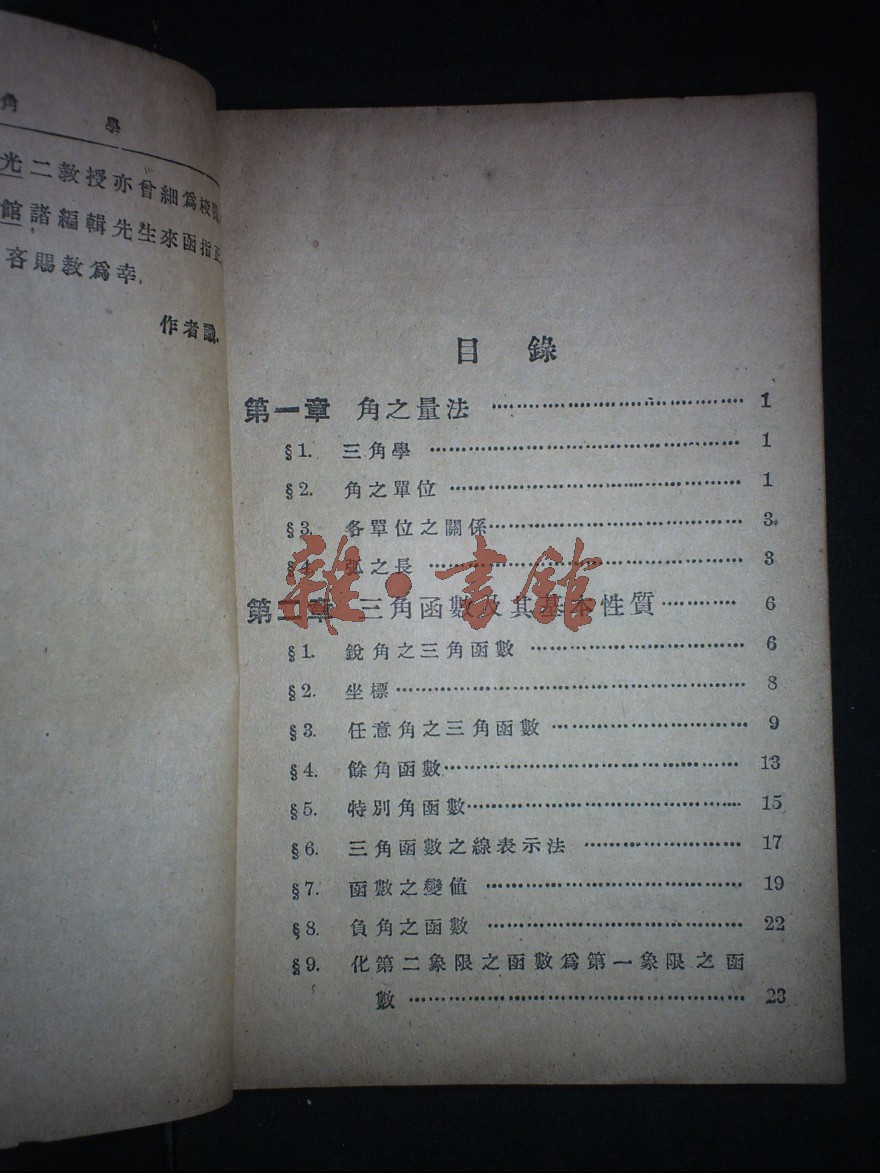 角 學
光二教授亦曾細爲校
館諸編輯先生來函指正
吝賜教爲幸.
作者識.
目 錄
第一章 角之量法 …… 1
§1. 三角學 …… 1
§2. 角之單位 …… 1
§3. 各單位之關係 …… 3
§4. 弧之長 …… 3
第二章 三角函數及其基本性質 …… 6
§1. 銳角之三角函數 …… 6
§2. 坐標 …… 8
§3. 任意角之三角函數 …… 9
§4. 餘角函數 …… 13
§5. 特別角函數 …… 15
§6. 三角函數之線表示法 …… 17
§7. 函數之變值 …… 19
§8. 負角之函數 …… 22
§9. 化第二象限之函數爲第一象限之函
數 …… 23
雜·書館